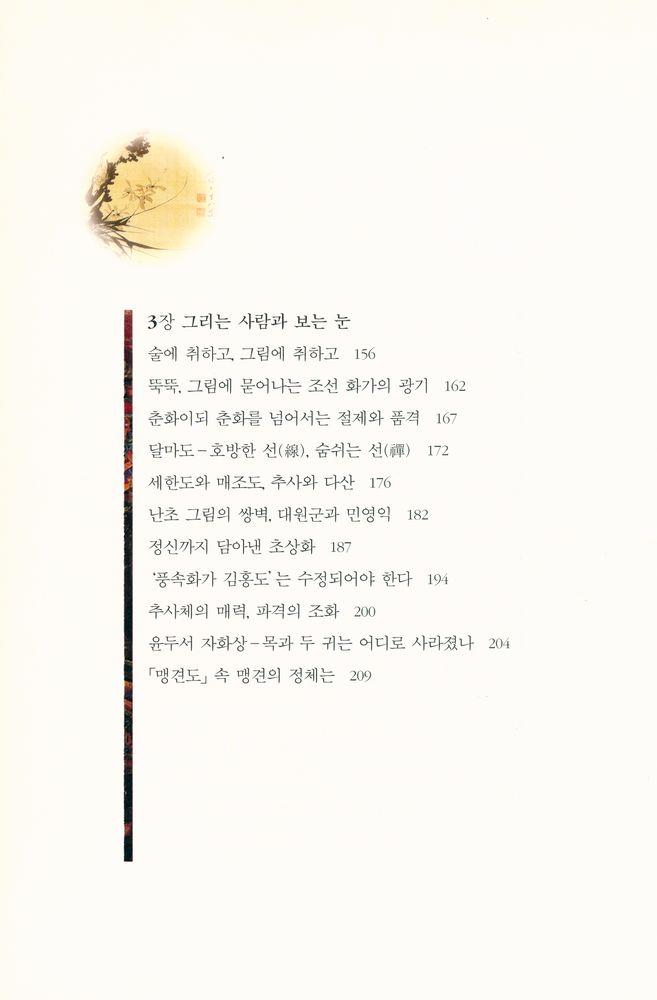 3장 그리는 사람과 보는 눈
술에 취하고, 그림에 취하고 156
뚝뚝, 그림에 묻어나는 조선 화가의 광기 162
춘화이되 춘화를 넘어서는 절제와 품격 167
달마도 – 호방한 선(線), 숨쉬는 선(禪) 172
세한도와 매조도, 추사와 다산 176
난초 그림의 쌍벽, 대원군과 민영익 182
정신까지 담아낸 초상화 187
'풍속화가 김홍도'는 수정되어야 한다 194
추사체의 매력, 파격의 조화 200
윤두서 자화상 – 목과 두 귀는 어디로 사라졌나 204
「맹견도」 속 맹견의 정체는 209